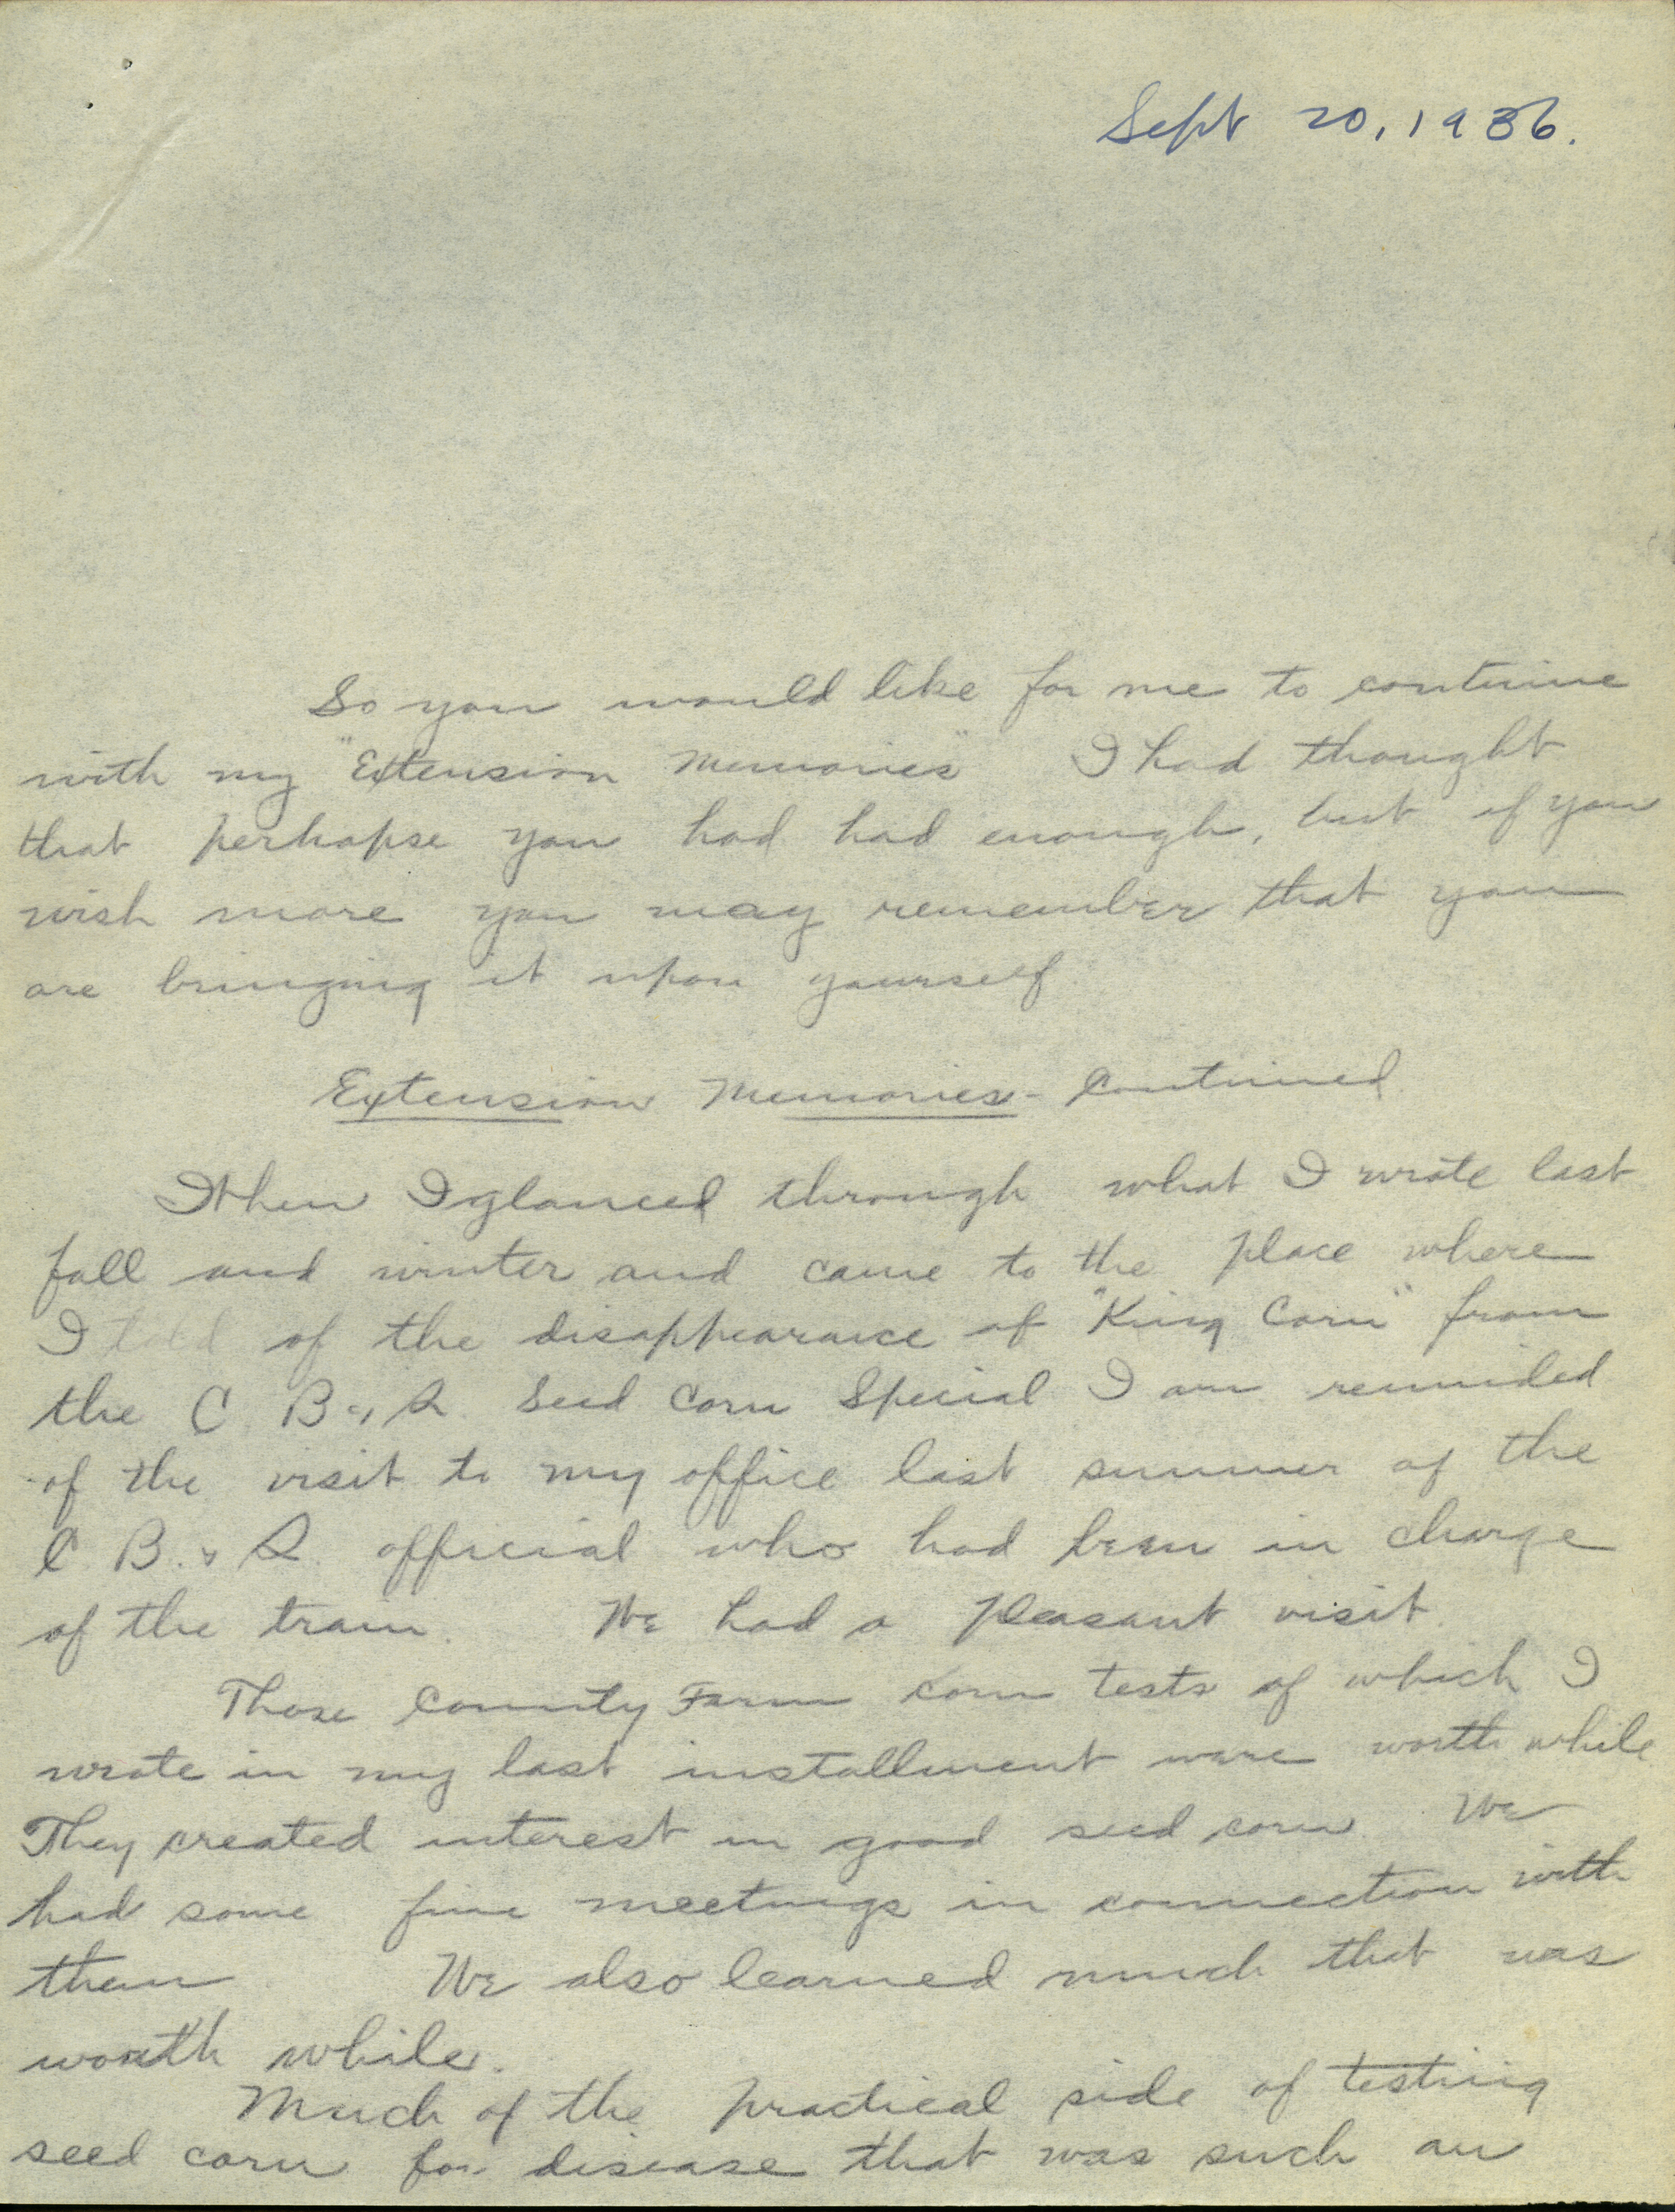 Sept 20, 1936.
So you would like for me to continue
with my "Extension Memories" I had thought
that perhapse you had had enough, but if you
wish more you may remember that you
are bringing it upon yourself
Extension Memories - Continued
When I glanced through what I wrote last
fall and winter and came to the place where
I told of the disappearance of "King Corn" from
the C. B. & Q. Seed Corn Special I am reminded
of the visit to my office last summer of the
C. B. & Q. official who had been in charge
of the train. We had a pleasant visit.
Those County Farm corn tests of which I
wrote in my last installment were worth while
They created interest in good seed corn. We
had some fine meetings in connection with
them We also learned much that was
worth while.
Much of the practical side of testing
seed corn for disease that was such an